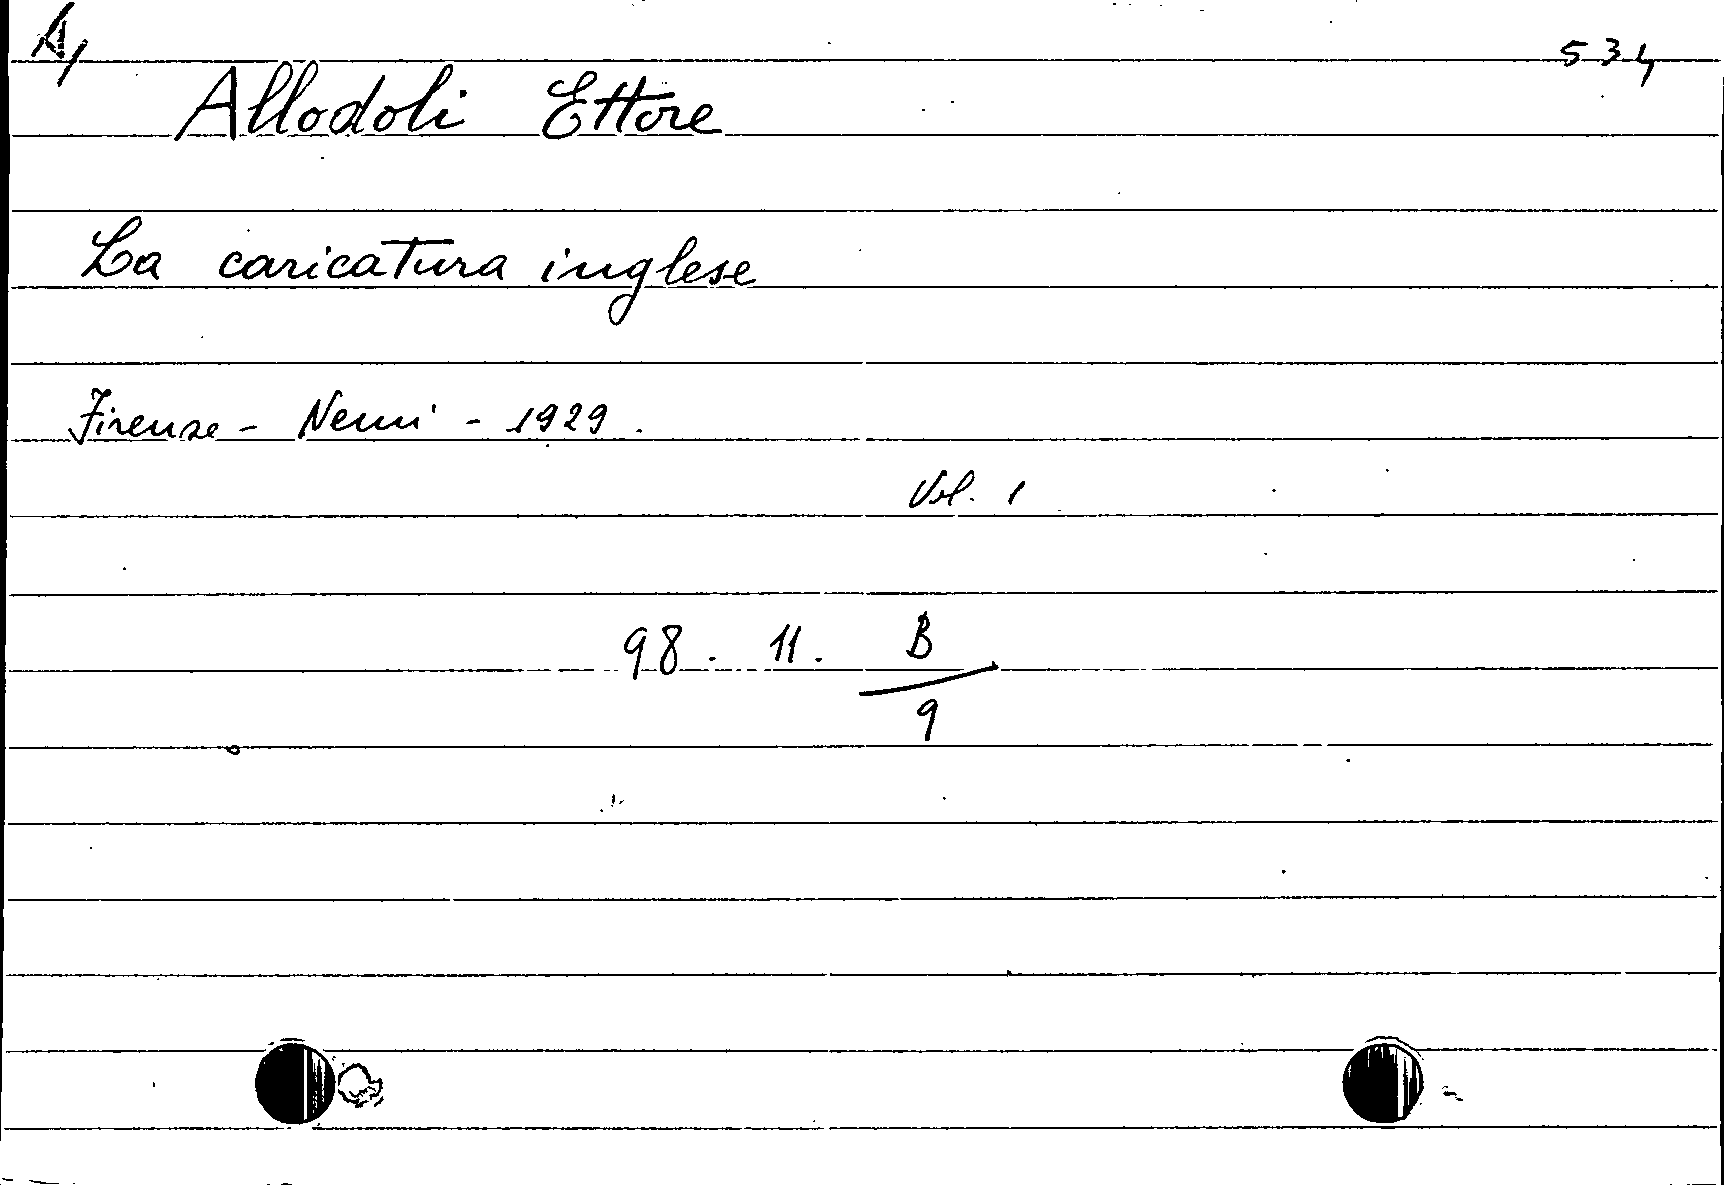 A,
534
Allodoli Ettore
La caricatura inglese
Firenze - Nemi - 1929.
Vol. 1
98. 11. B
9